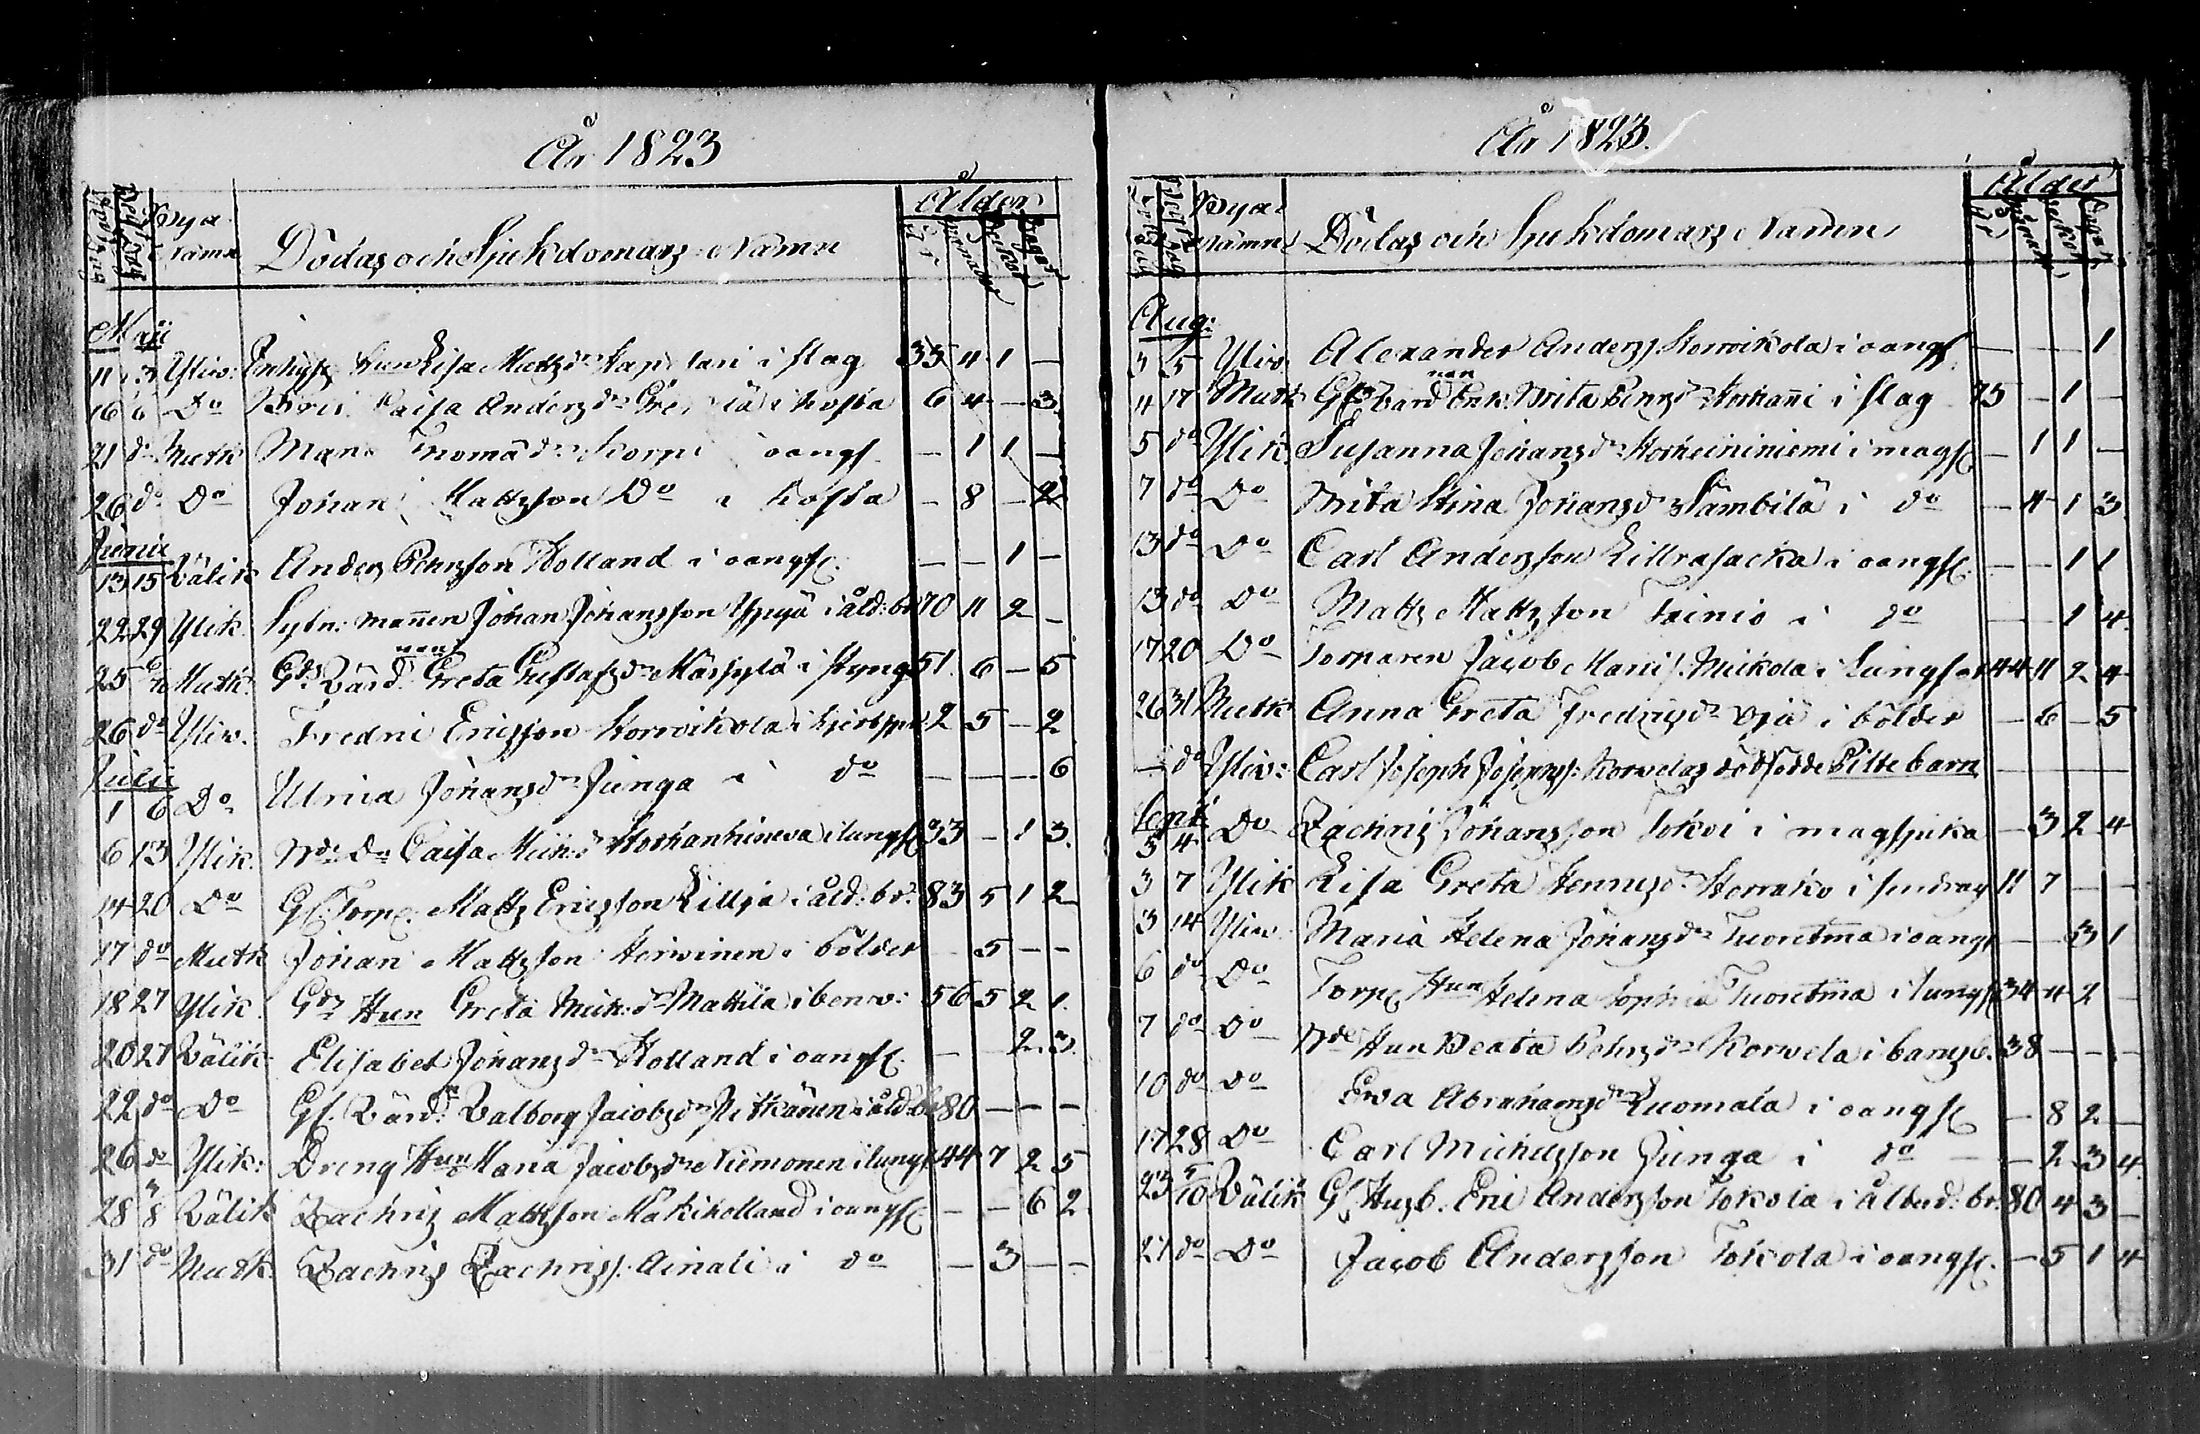 År 1823
Bya Namn Dödas och Sjukdomars Namn Ålder
År Månader Veckor Dagar
Maji
11 Yliv: Lisa Mattsdr i slag 35 4 1 —
16 6 Do Caisa Andersdr i hosta 6 4 — 3
21 do Mutk Thomädr Korpi i oangf — 1 1 —
26 do Do Johan Mattsson Do i hosta — 8 — 2
Junii
13 15 Välik Anders Pehrsson Holland i oangf. — — 1 —
22 29 Ylik Sytn: mannen Johan Johansson i åld: br 70 11 2 —
25 Mutk. Greta Gustafsdr i styng 51 6 — 5
26 do Yliv. Fredric Ericsson Korwikola i 2 5 — 2
Julii
1 6 Do Ulrica Johansdr Junga i do — — — 6
6 13 Ylik. Caisa Mich:dr i lungs 33 — 1 3
14 20 Do Gl: Torp: Matts Ericsson Lillja i åld: br: 83 5 1 2
17 do Mutk Johan Mattsson Herwinen i bölder — 5 — —
18 27 Ylik. Hun Greta Mich:dr Mattila i benv: 56 5 2 1
20 27 Välik Elisabet Johansdr Holland i oangf. — — 2 3
22 do Do Gl. Värd: Valborg Jacobsdr Petkänen i åld: br 80 — — —
26 do Ylik: Dreng Hun Maria Jacobsdr Niemonen i lungs 44 7 2 5
28 8 Välik Zachris Mattsson Mäkiholland i oangf — — 6 2
31 do Mutk. Zachris Zachriss. Ainali i do — 3 — —
År 1823.
Bya Namn Dödas och Sjukdomars Namn Ålder
År Månader Veckor Dagar
Aug:
3 5 Yliv Alexander Anders Korwikola i oangf — — — 1
4 17 Mutk Enk: Brita Bengsdr i slag 75 — 1 —
5 do Ylik. Susanna Johansdr Korkeiniemi i mags — 1 1 —
7 do Do Brita Stina Johansdr Sämbilä i do — 4 1 3
13 do Do Carl Andersson Lillrasacka i oangf. — — 1 1
13 do Do Matts Mattsson Toinio i do — — 1 4
17 20 Do Torparen Jacob Mickola i Lungsot 44 11 2 4
26 31 Mutk Anna Greta Fredricsdr i bölder — 6 — 5
— do Yliv: Carl Joseph Josephs: Korwelas dödfödde Pilte barn — — — —
Sept:
3 4 Do Zachris Johansson Tokoi i magsjuka — 3 2 4
3 7 Ylik Lisa Greta Henricsdr Herrako i sendrag 11 7 — —
3 14 Yliv Maria Helena Johansdr i oangf — — 3 1
6 do Do Torp: Hun Helena Sophia i lungs 34 4 2 —
7 do Do Hun Beata Pehrsdr Korwela i barnsb. 38 — — —
10 do Do Ewa Abrahamsdr Luomala i oangf — 8 2 —
17 28 Do Carl Michelsson Junga i do — 2 3 4
23 5/10 Välik Gl Husb. Eric Andersson Tokola i ålderd: br: 80 4 3 —
27 do Do Jacob Andersson Tokola i oangf. — 5 1 4